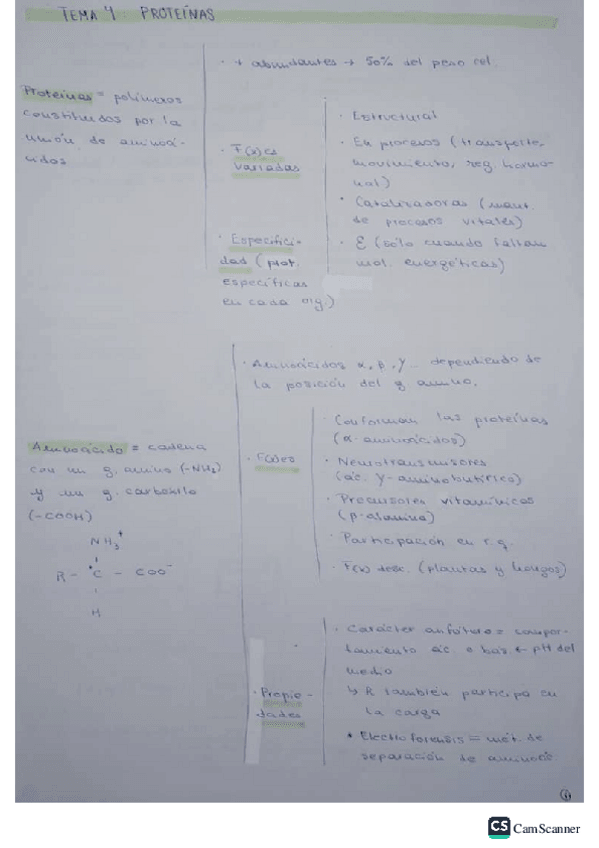 TEMA 4. PROTEÍNAS
· + abundantes → 50% del peso cel.
Proteínas = polímeros
constituidos por la
unión de aminoá-
cidos
· F(x)es
variadas
· Estructural
· En procesos (transporte,
movimiento, reg. hormo-
nal)
· Catalizadoras (mant.
de procesos vitales)
· E (sólo cuando faltan
mol. energéticas)
· Especifici-
dad (prot.
específicas
en cada org.)
· Aminoácidos α, β, γ dependiendo de
la posición del g amino.
Aminoácido = cadena
con un g. amino (-NH2)
y un g. carboxilo
(-COOH)
NH3+
R - C - COO-
H
· F(x)es
· Conforman las proteínas
(α-aminoácidos)
· Neurotransmisores
(ác. γ-aminobutírico)
· Precursores vitamínicos
(β-alanina)
· Participación en r.q.
· F(x) desc. (plantas y hongos)
· Propie-
dades
· Carácter anfótero = compor-
tamiento ác. o bás ← pH del
medio
↳ R también participa en
la carga
* Electroforensis = mét. de
separación de aminoác
1
CS CamScanner